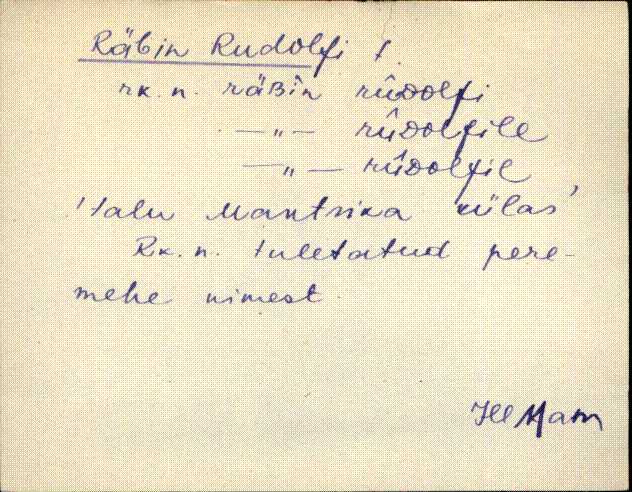 Räbin Rudolfi t.
rk. n. räʙin rûdolfi
—„— rûdolfile
—„— rûdolfil
Talu Mantsika külas,
Rk. n. tuletatud pere-
mehe nimest.